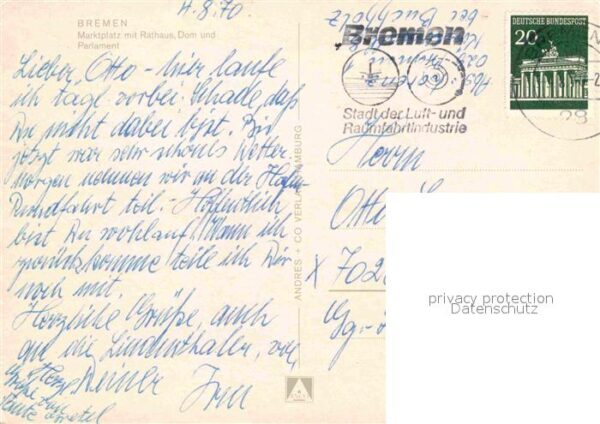 4.8.70.
BREMEN
Marktplatz mit Rathaus, Dom und
Parlament
Lieber Otto - hier laufe
ich tägl. vorbei. Schade, daß
Du nicht dabei bist. Bis
jetzt war sehr schönes Wetter
morgen nehmen wir an der Hafen-
Rundfahrt teil. - Hoffentlich
bist Du wohlauf. Wann ich
zurückkomme teile ich Dir
noch mit.
Herzliche Grüße, auch
an die Lindenthaler, von
Deiner Irm
Herzl.
Grüße von
Tante
ANDRES + CO VERLAG HAMBURG
Bremen
Stadt der Luft- und
Raumfahrtindustrie
DEUTSCHE BUNDESPOST
20
28
bei Buchholz
Herrn
Otto
X 702
privacy protection
Datenschutz